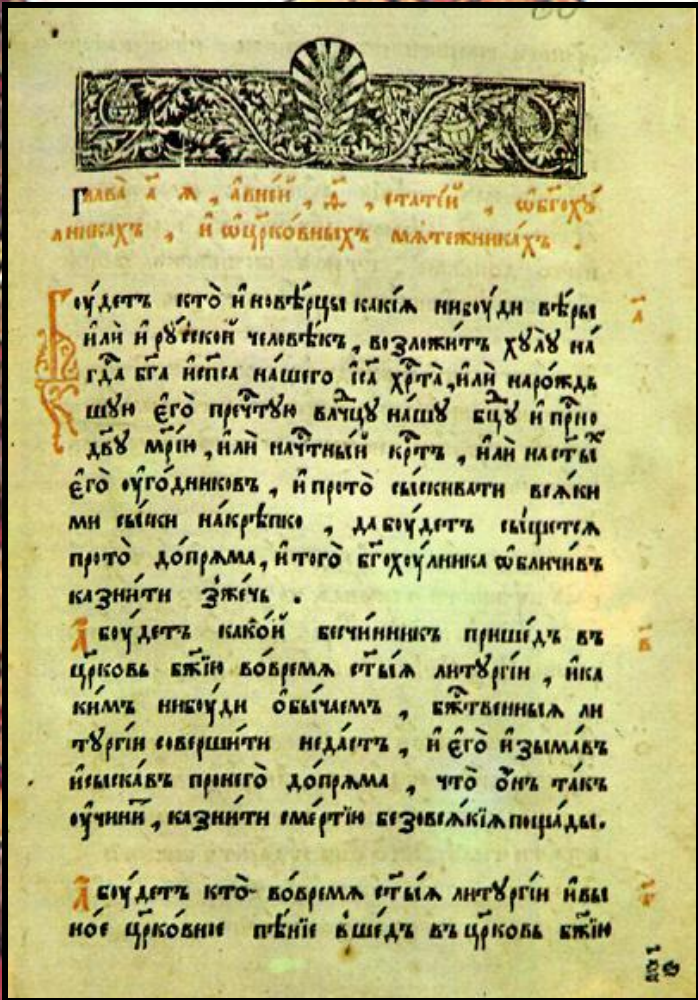 Глава̀ а҃ я , а́вней , ѳ҃ , стате́й , ѡ҆бг҃оху́
льникахъ , и҆ ѡ҆цр҃ко́вныхъ мѧте́жникахъ .
Боу́детъ кто̀ и҆новѣ́рцы какі́ѧ нибоу́ди вѣ́ры
и҆лѝ и҆ ру́сской человѣ́къ , возложи́тъ хулꙋ̀ на́
гд҃а бг҃а и҆сп҃са на́шего і҆с҃а хр҃та̀ , и҆лѝ наро́ждь
шую є҆го̀ преч҃тую влⷣчцу на́шу бц҃у и҆ при҃но
дв҃у мр҃і́ю , и҆лѝ нач҃тны́й кр҃тъ , и҆лѝ на ст҃ы́хъ
є҆го̀ оу҆го́дниковъ , и҆ прото̀ сы́скивати всѧ́ки
ми сы́ски на́крѣпко , да боу́детъ сы́щетсѧ
прото̀ до́прѧма , и҆ того̀ бг҃охоу́лника ѡ҆бличи́въ
казни́ти зже́чь .
А҆ боу́детъ како́й бесчи́нникъ прише́дъ въ
цр҃ковь бж҃їю во́времѧ ст҃ы́ѧ литургі́и , и҆ка
ки́мъ нибоу́ди ѻ҆бы́чаемъ , бж҃твенныѧ ли
тургі́и соверши́ти неда́стъ , и҆ є҆го̀ и҆зыма́въ
и҆сыска́въ пронего̀ до́прѧма , что̀ ѻ҆́нъ та́къ
оу҆чини́тъ , казни́ти сме́ртїю безовсѧ́кїѧ поща́ды .
А҆ боу́детъ кто̀ во́времѧ ст҃ы́ѧ литургі́и и҆вы
но́е цр҃ко́вное пѣ́нїе вше́дъ въ цр҃ковь бж҃їю